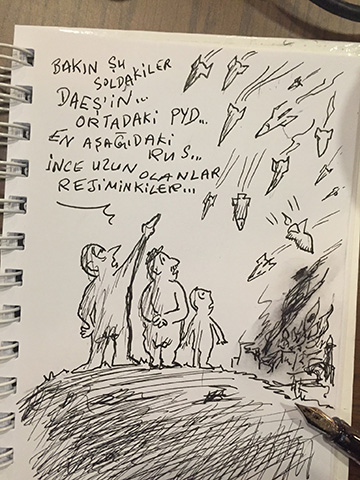 BAKIN ŞU
SOLDAKİLER
DAEŞ'İN...
ORTADAKİ PYD...
EN AŞAĞIDAKİ
RUS...
İNCE UZUN OLANLAR
REJİMİNKİLER...